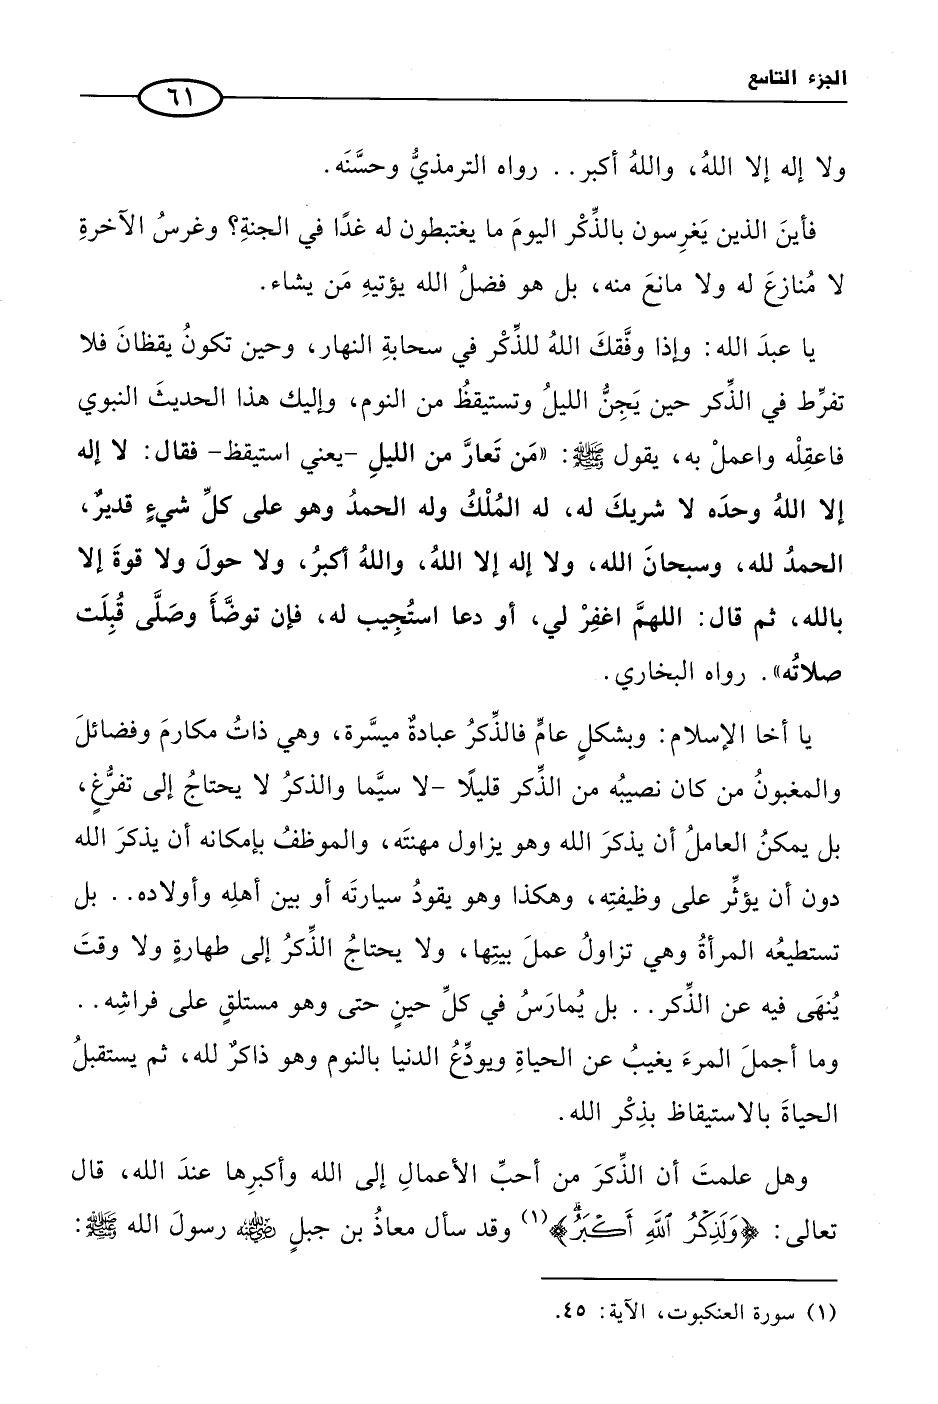 الجزء التاسع
٦١
ولا إله إلا اللهُ، واللهُ أكبر.. رواه الترمذيُّ وحسَّنَه.
فأينَ الذين يَغرِسون بالذِّكْر اليومَ ما يغتبطون له غدًا في الجنةِ؟ وغرسُ الآخرةِ
لا مُنازعَ له ولا مانعَ منه، بل هو فضلُ الله يؤتيهِ مَن يشاء.
يا عبدَ الله: وإذا وفَّقكَ اللهُ للذِّكْر في سحابةِ النهار، وحين تكونُ يقظانَ فلا
تفرِّط في الذِّكر حين يَجِنُّ الليلُ وتستيقظُ من النوم، وإليك هذا الحديثَ النبوي
فاعقِلْه واعملْ به، يقول ﷺ: «مَن تَعارَّ من الليلِ -يعني استيقظ- فقال: لا إله
إلا اللهُ وحدَه لا شريكَ له، له المُلْكُ وله الحمدُ وهو على كلِّ شيءٍ قديرٌ،
الحمدُ لله، وسبحانَ الله، ولا إله إلا اللهُ، واللهُ أكبرُ، ولا حولَ ولا قوةَ إلا
بالله، ثم قال: اللهمَّ اغفِرْ لي، أو دعا استُجِيب له، فإن توضَّأَ وصَلَّى قُبِلَت
صلاتُه». رواه البخاري.
يا أخا الإسلام: وبشكلٍ عامٍّ فالذِّكرُ عبادةٌ ميسَّرة، وهي ذاتُ مكارمَ وفضائلَ
والمغبونُ من كان نصيبُه من الذِّكر قليلًا -لا سيَّما والذكرُ لا يحتاجُ إلى تفرُّغٍ،
بل يمكنُ العاملُ أن يذكرَ الله وهو يزاول مهنتَه، والموظفُ بإمكانه أن يذكرَ الله
دون أن يؤثِّر على وظيفتِه، وهكذا وهو يقودُ سيارتَه أو بين أهلِه وأولاده.. بل
تستطيعُه المرأةُ وهي تزاولُ عملَ بيتِها، ولا يحتاجُ الذِّكرُ إلى طهارةٍ ولا وقتَ
يُنهَى فيه عن الذِّكر.. بل يُمارَسُ في كلِّ حينٍ حتى وهو مستلقٍ على فراشِه..
وما أجملَ المرءَ يغيبُ عن الحياةِ ويودِّعُ الدنيا بالنوم وهو ذاكرٌ لله، ثم يستقبلُ
الحياةَ بالاستيقاظ بذِكْر الله.
وهل علمتَ أن الذِّكرَ من أحبِّ الأعمالِ إلى الله وأكبرِها عندَ الله، قال
تعالى: ﴿وَلَذِكْرُ ٱللَّهِ أَكْبَرُ﴾(١) وقد سأل معاذُ بن جبلٍ رضي الله عنه رسولَ الله ﷺ:
(١) سورة العنكبوت، الآية: ٤٥.